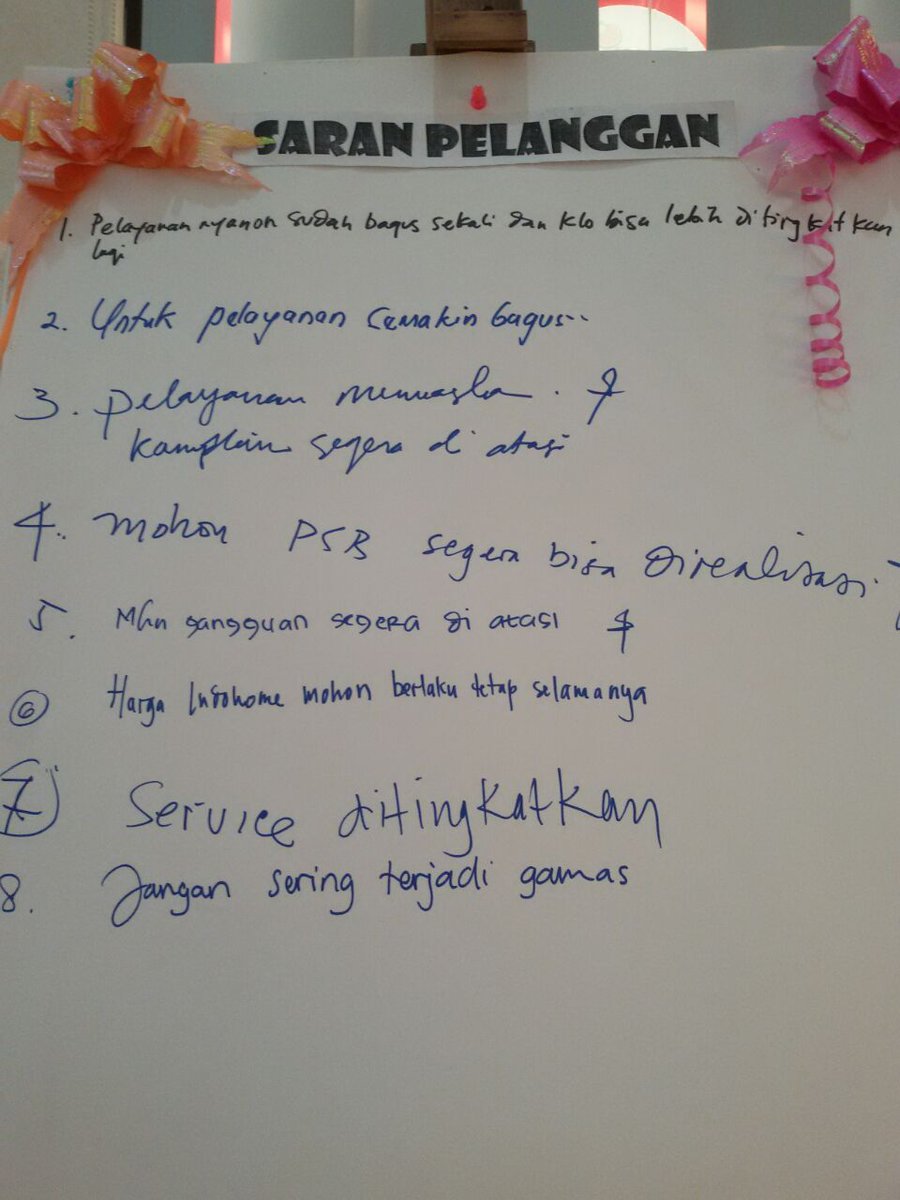 SARAN PELANGGAN
1. Pelayanan nyanon sudah bagus sekali dan klo bisa lebih ditingkatkan
lagi
2. Untuk pelayanan semakin bagus..
3. pelayanan
komplain segera di atasi
4. mohon PSB segera bisa direalisasi.
5. Mhn gangguan segera di atasi
6 Harga Indohome mohon berlaku tetap selamanya
7 Service ditingkatkan
8. Jangan sering terjadi gamas